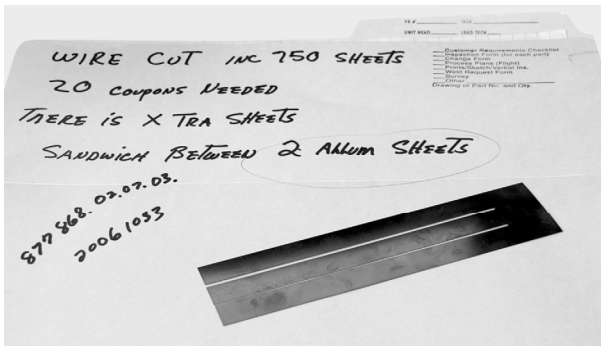 FE # TICK
UNIT HEAD LEAD TECH
WIRE CUT INC 750 SHEETS
Customer Requirements Checklist
Inspection Form (for each part)
Change Form
Process Plans (Flight)
Prints/Sketch/Verbal Ins.
Weld Request Form
Survey
Other
Drawing or Part No. and Qty.
20 COUPONS NEEDED
THERE IS X TRA SHEETS
SANDWICH BETWEEN 2 ALLUM SHEETS
877868.02.07.03.
20061033